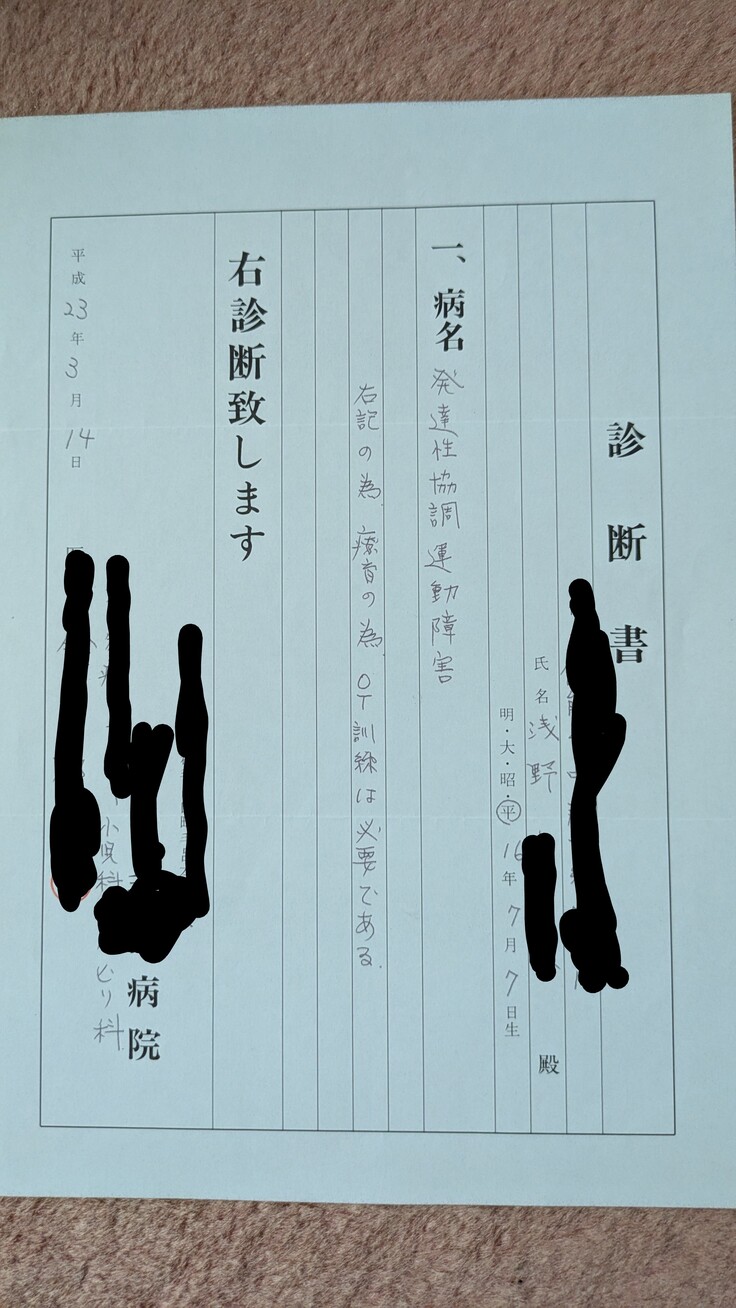 診断書
氏名 浅野 殿
明・大・昭・平 16年7月7日生
一、病名 発達性協調運動障害
右記の為、療育の為、OT訓練は必要である。
右診断致します
病院
小児科 ビリ科
平成23年3月14日